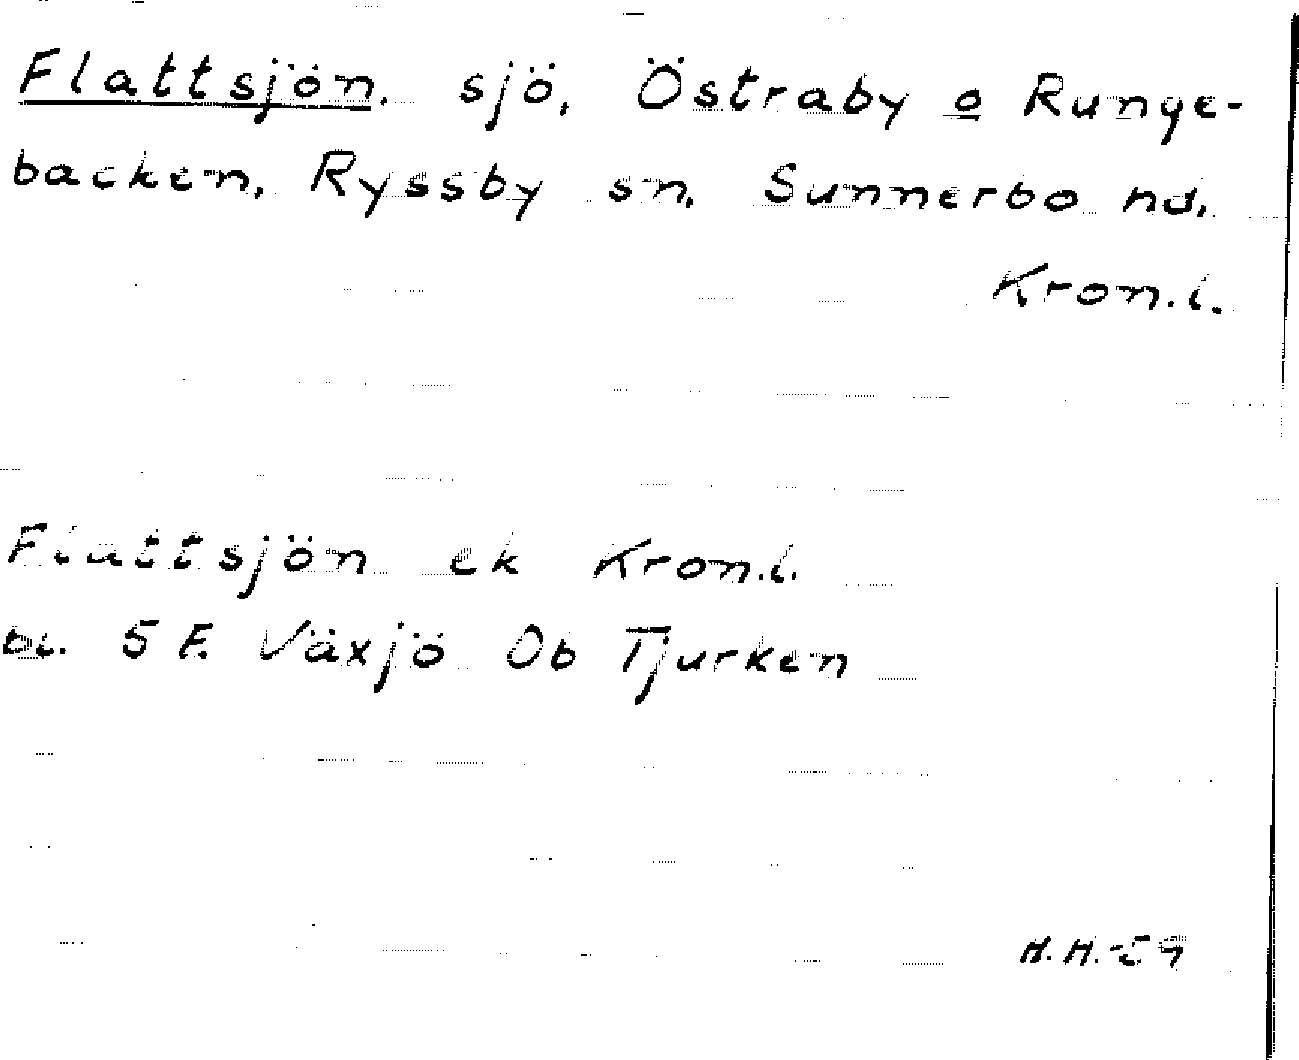 Flattsjön. sjö, Östraby o Runge-
backen, Ryssby sn. Sunnerbo hd.
Kron.l.
Flattsjön ek Kron.l.
bl. 5 F. Växjö Ob Tjurken
H.H.-59